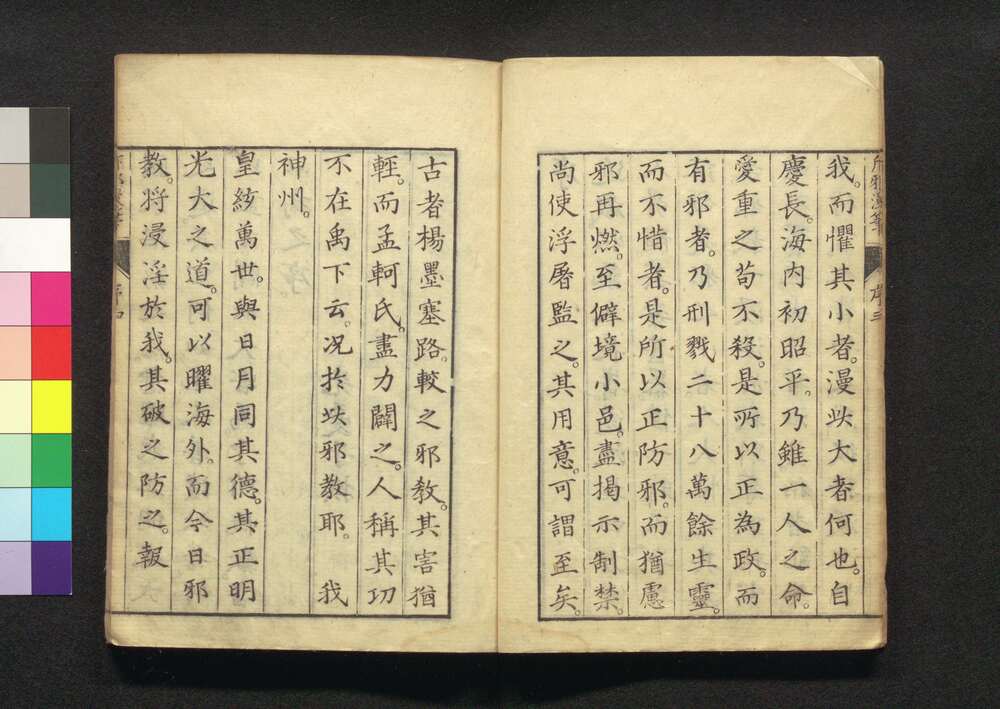 我。而懼其小者。漫㕥大者何也。自
慶長。海内初昭平。乃雖一人之命。
愛重之苟不殺。是所以正為政。而
有邪者。乃刑戮二十八萬餘生靈。
而不惜者。是所以正防邪。而猶慮
邪再燃。至僻境小邑。盡揭示制禁。
尚使浮屠監之。其用意。可謂至矣。
序三
古者楊墨塞路。較之邪教。其害猶
輕。而孟軻氏。盡力闢之。人稱其功
不在禹下云。况於㕥邪教耶。我
神州。
皇紘萬世。與日月同其德。其正明
光大之道。可以曜海外。而今日邪
教。将浸淫於我。其破之防之。報
序四